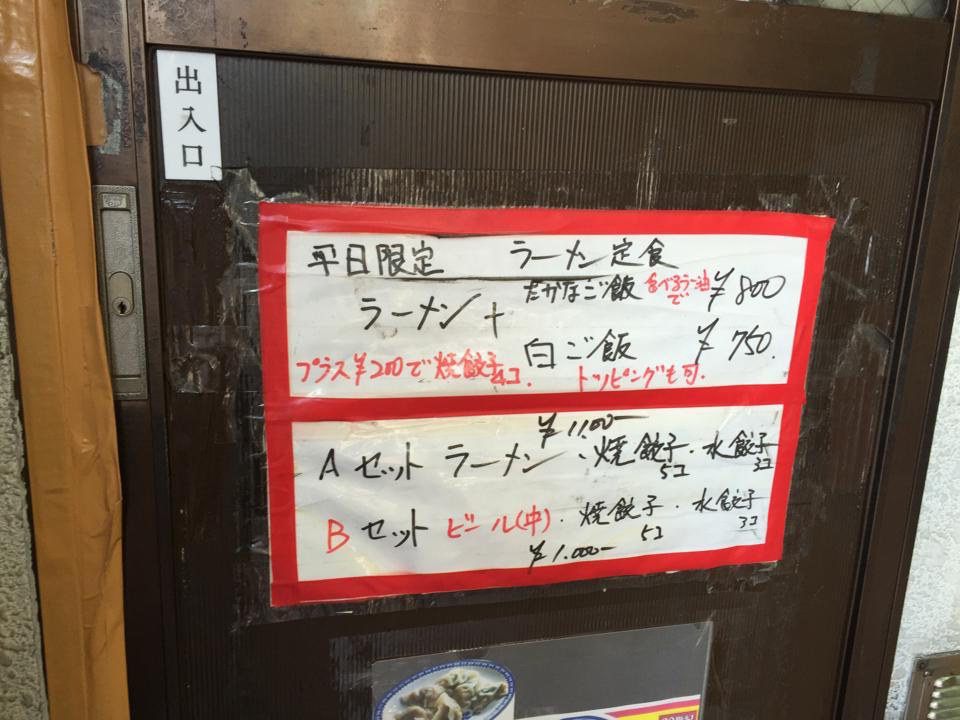 出入口
平日限定 ラーメン定食
たかなご飯 食べるラー油で ¥800
ラーメン +
白ご飯 ¥750.
プラス¥200で焼餃子4コ. トッピングも可.
¥1,100-
Aセット ラーメン・焼餃子・水餃子
5コ 3コ
Bセット ビール(中)・焼餃子・水餃子
5コ 3コ
¥1.000-